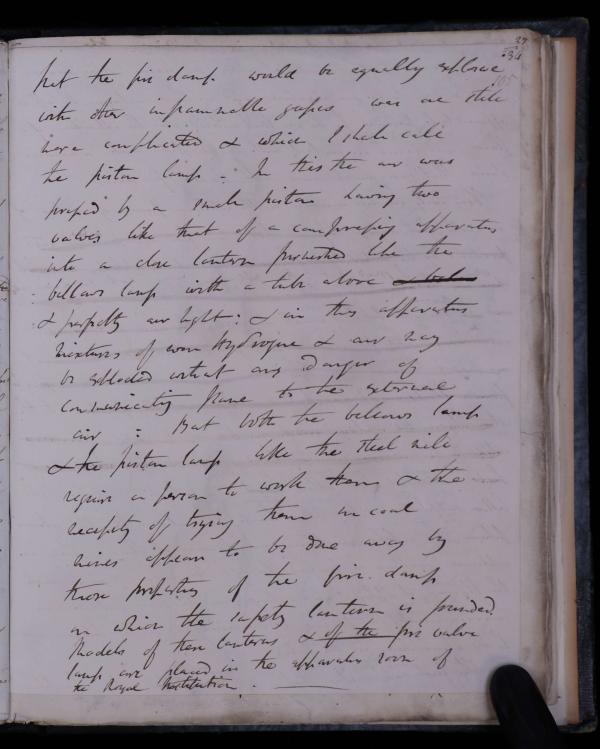 27
34
105
but the fire damp would be equally explosive
with other inflammable gases was one still
more complicated & which I shall call
the piston lamp - In this the air was
pressed by a small piston having two
valves like that of a compressing apparatus
into a close lantern furnished like the
bellows lamp with a tube above
& perfectly air tight: & in this apparatus
mixtures of even Hydrogene & air may
be exploded without any danger of
communicating flame to the external
air : But both the bellows lamp
& the piston lamp like the steel mile
require a person to work them & the
necessity of trying them in coal
mines appears to be done away by
those properties of the fire-damp
on which the safety lantern is founded.
Models of these lanterns & of the fire valve
lamp are placed in the apparatus room of
the Royal Institution.